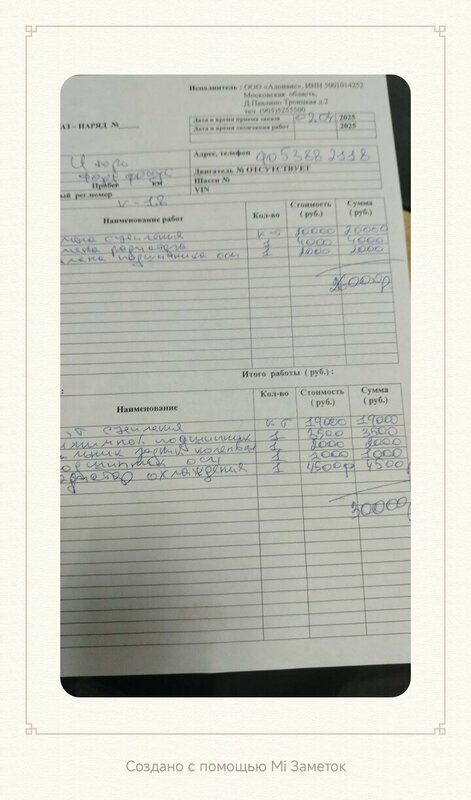 Исполнитель : ООО «Адонис», ИНН 5001014252
Московская область,
Д.Павлино Троицкая д.2
тел (905)5255500
АЗ – НАРЯД №
Дата и время приема заказа 02.04 2025
Дата и время окончания работ 2025
Игорь
Адрес, телефон 9053882118
форд фокус
Двигатель № ОТСУТСТВУЕТ
Пробег км
Шасси №
ый рег.номер
VIN
V-1.8
Наименование работ Кол-во Стоимость ( руб.) Сумма ( руб.)
мена сцепления к-т 20000 20000
мена радиатора 1 4000 4000
мена подшипника оси 1 2000 2000
26000р
Итого работы ( руб.) :
Наименование Кол-во Стоимость ( руб.) Сумма ( руб.)
т сцепления к-т 19000 19000
жимной подшипник 1 3500 3500
льник задний коленвал 1 2000 2000
одшипник оси 1 1000
диатор охлаждения 1 4500р 4500
30000р
Создано с помощью Mi Заметок